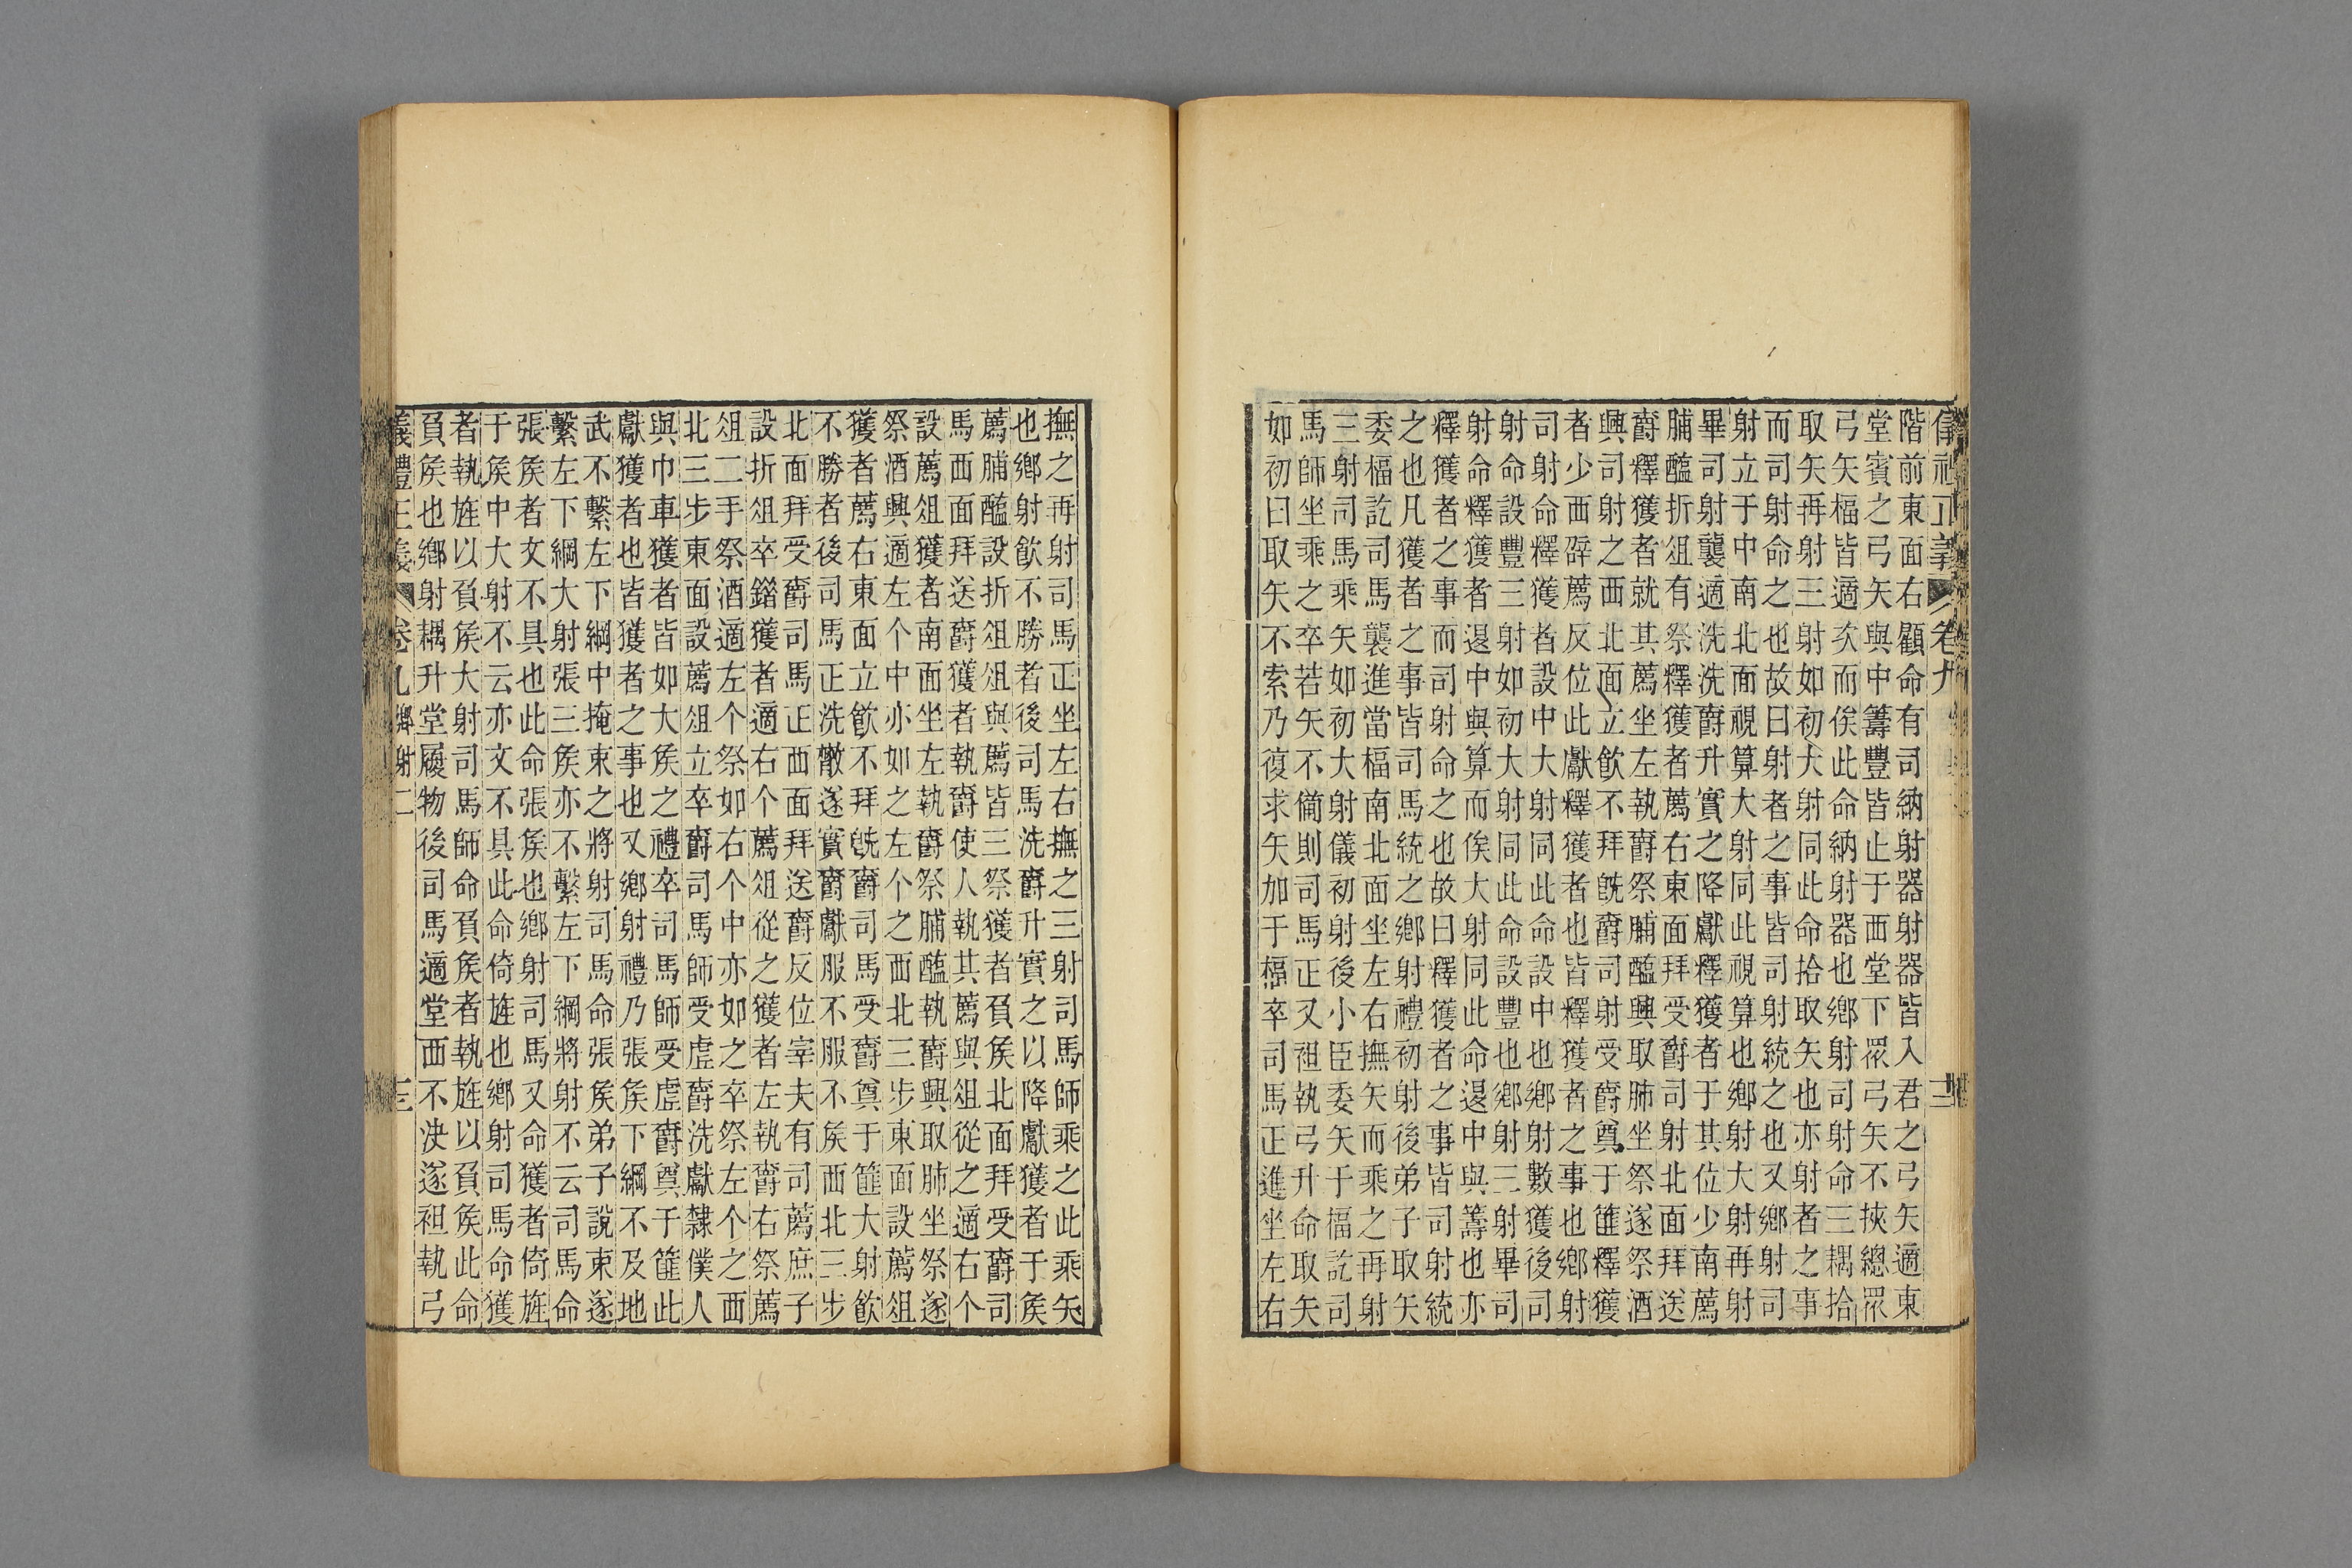 儀禮正義 卷九
階前東面右顧命有司納射器射器皆入君之弓矢適東
堂賓之弓矢與中籌豐皆止于西堂下眾弓矢不挾總眾
弓矢楅皆適次而俟此命納射器也鄉射司射命三耦拾
取矢再射三射如初大射同此命拾取矢也亦射者之事
而司射命之也故曰射者之事皆司射統之也又鄉射司
射立于中南北面視算大射同此視算也鄉射大射再射
畢司射襲適洗洗爵升實之降獻釋獲者于其位少南薦
脯醢折俎有祭釋獲者薦右東面拜受爵司射北面拜送
爵釋獲者就其薦坐左執爵祭脯醢興取肺坐祭遂祭酒
興司射之西北面立飲不拜旣爵司射受爵奠于篚釋獲
者少西辟薦反位此獻釋獲者也皆釋獲者之事也鄉射
司射命釋獲者設中大射同此命設中也鄉射數獲後司
射命設豐三射如初大射同此命設豐也鄉射三射畢司
射命釋獲者退中與算而俟大射同此命退中與籌也亦
釋獲者之事而司射命之也故曰釋獲者之事皆司射統
之也凡獲者之事皆司馬統之鄉射禮初射後弟子取矢
委楅訖司馬襲進當楅南北面坐左右撫矢而乘之再射
三射司馬乘矢如初大射儀初射後小臣委矢于楅訖司
馬師坐乘之卒若矢不備則司馬正又袒執弓升命取矢
如初曰取矢不索乃復求矢加于楅卒司馬正進坐左右
撫之再射司馬正坐左右撫之三射司馬師乘之此乘矢
也鄉射飲不勝者後司馬洗爵升實之以降獻獲者于侯
薦脯醢設折俎俎與薦皆三祭獲者負侯北面拜受爵司
馬西面拜送爵獲者執爵使人執其薦與俎從之適右个
設薦俎獲者南面坐左執爵祭脯醢執爵興取肺坐祭遂
祭酒興適左个中亦如之左个之西北三步東面設薦俎
獲者薦右東面立飲不拜旣爵司馬受爵奠于篚大射飲
不勝者後司馬正洗散遂實爵獻服不服不侯西北三步
北面拜受爵司馬正西面拜送爵反位宰夫有司薦庶子
設折俎卒錯獲者適右个薦俎從之獲者左執爵右祭薦
俎二手祭酒適左个祭如右个中亦如之卒祭左个之西
北三步東面設薦俎立卒爵司馬師受虛爵洗獻隸僕人
與巾車獲者皆如大侯之禮卒司馬師受虛爵奠于篚此
獻獲者也皆獲者之事也又鄉射禮乃張侯下綱不及地
武不繫左下綱中掩束之將射司馬命張侯弟子說束遂
繫左下綱大射張三侯亦不繫左下綱將射不云司馬命
張侯者文不具也此命張侯也鄉射司馬又命獲者倚旌
于侯中大射不云亦文不具此命倚旌也鄉射司馬命獲
者執旌以負侯大射司馬師命負侯者執旌以負侯此命
負侯也鄉射耦升堂履物後司馬適堂西不決遂袒執弓
儀禮正義 卷九 鄉射二